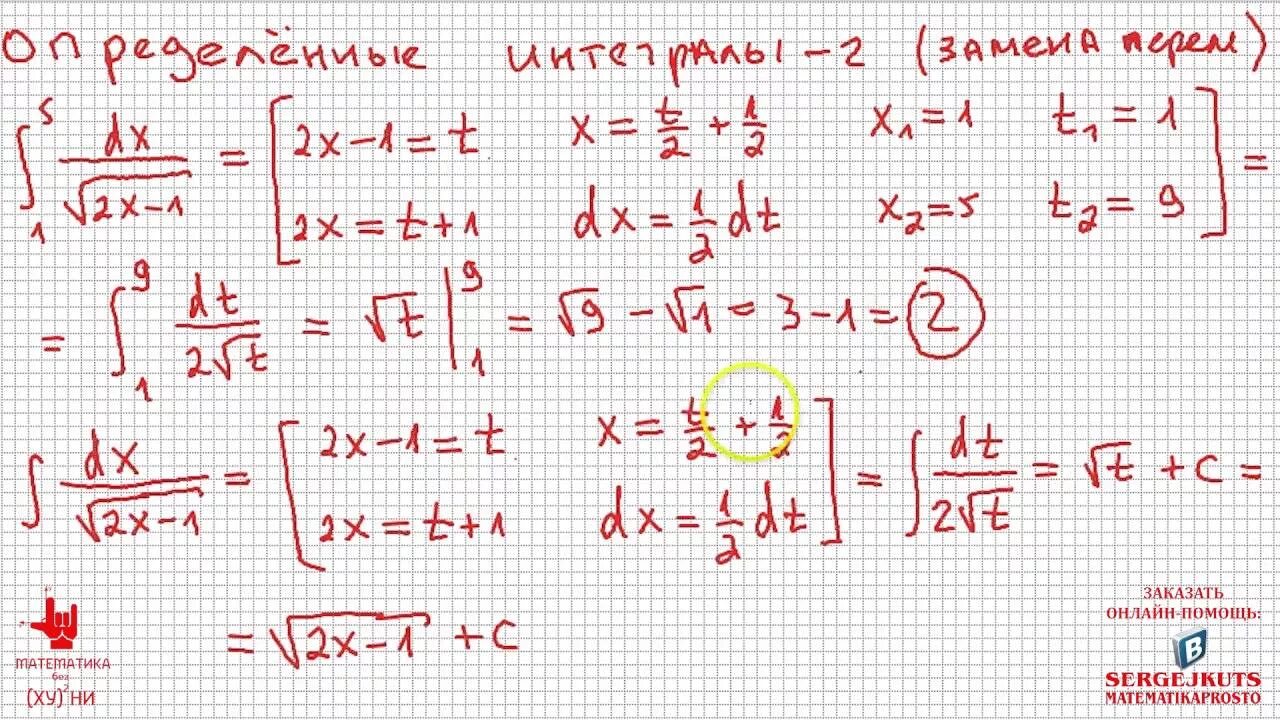 Определённые интегралы-2 (замена перем)
∫₁⁵ dx/√(2x-1) = [2x-1=t x=t/2+1/2 x₁=1 t₁=1
2x=t+1 dx=1/2 dt x₂=5 t₂=9] =
= ∫₁⁹ dt/(2√t) = √t |₁⁹ = √9 - √1 = 3-1 = 2
∫ dx/√(2x-1) = [2x-1=t x=t/2+1/2
2x=t+1 dx=1/2 dt] = ∫ dt/(2√t) = √t + c =
= √(2x-1) + c
МАТЕМАТИКА
без
(ХУ)²НИ
ЗАКАЗАТЬ
ОНЛАЙН-ПОМОЩЬ:
B
SERGEJKUTS
MATEMATIKAPROSTO